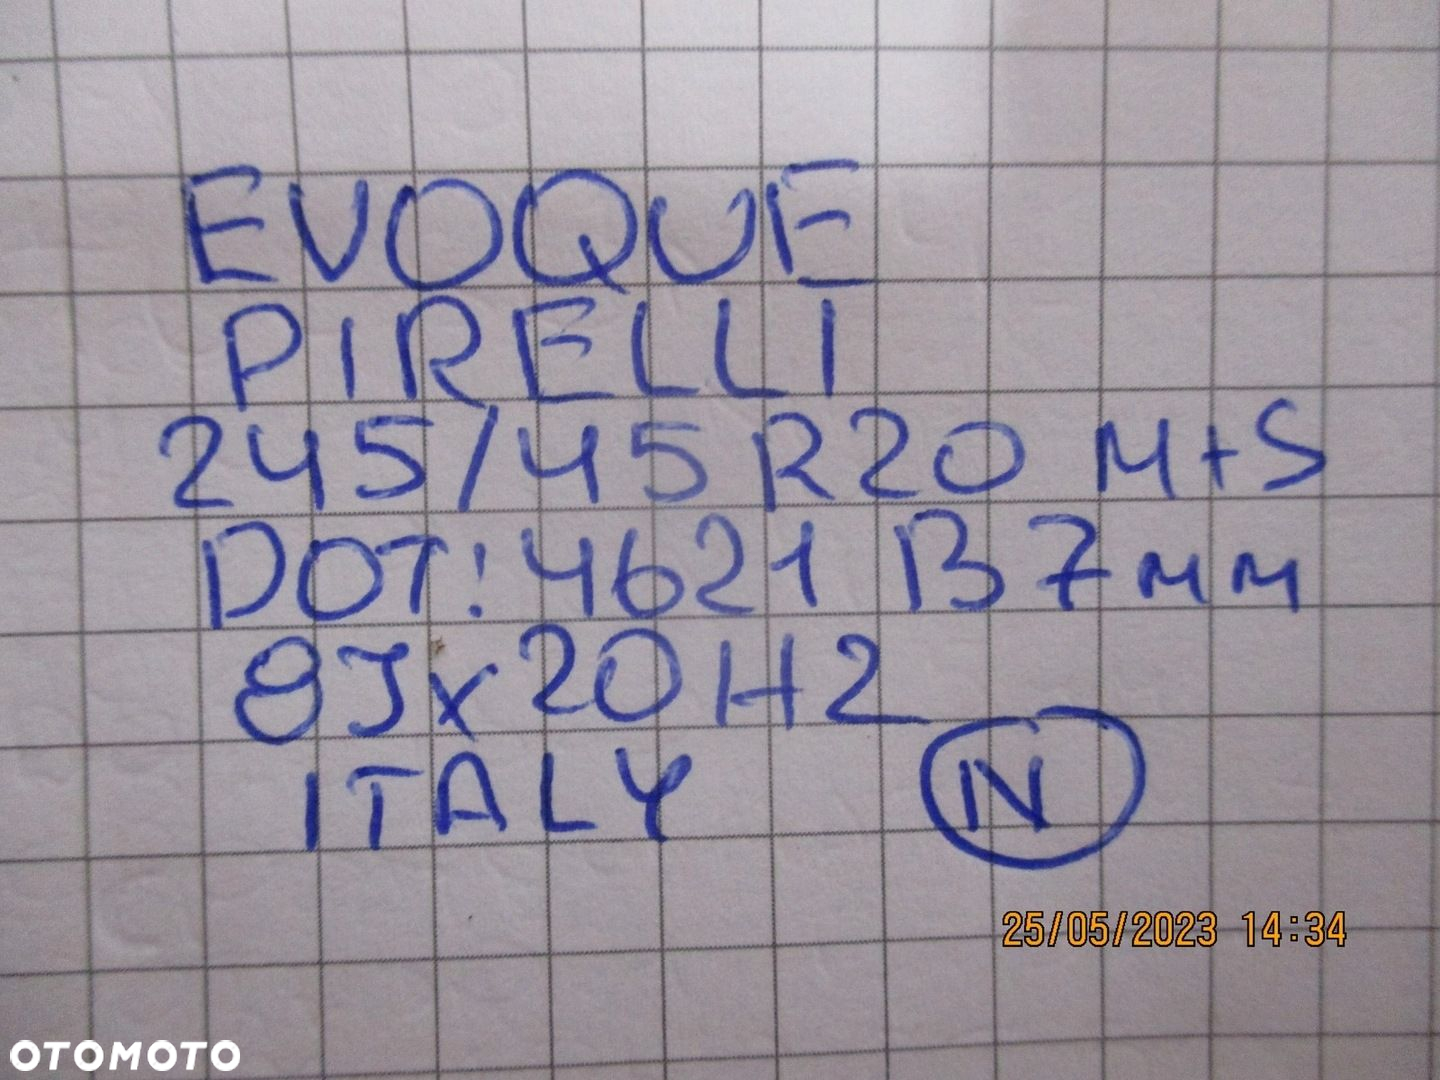 EVOQUE
PIRELLI
245/45 R20 M+S
DOT: 4621 B 7mm
8Jx20H2
ITALY
N
25/05/2023 14:34
OTOMOTO